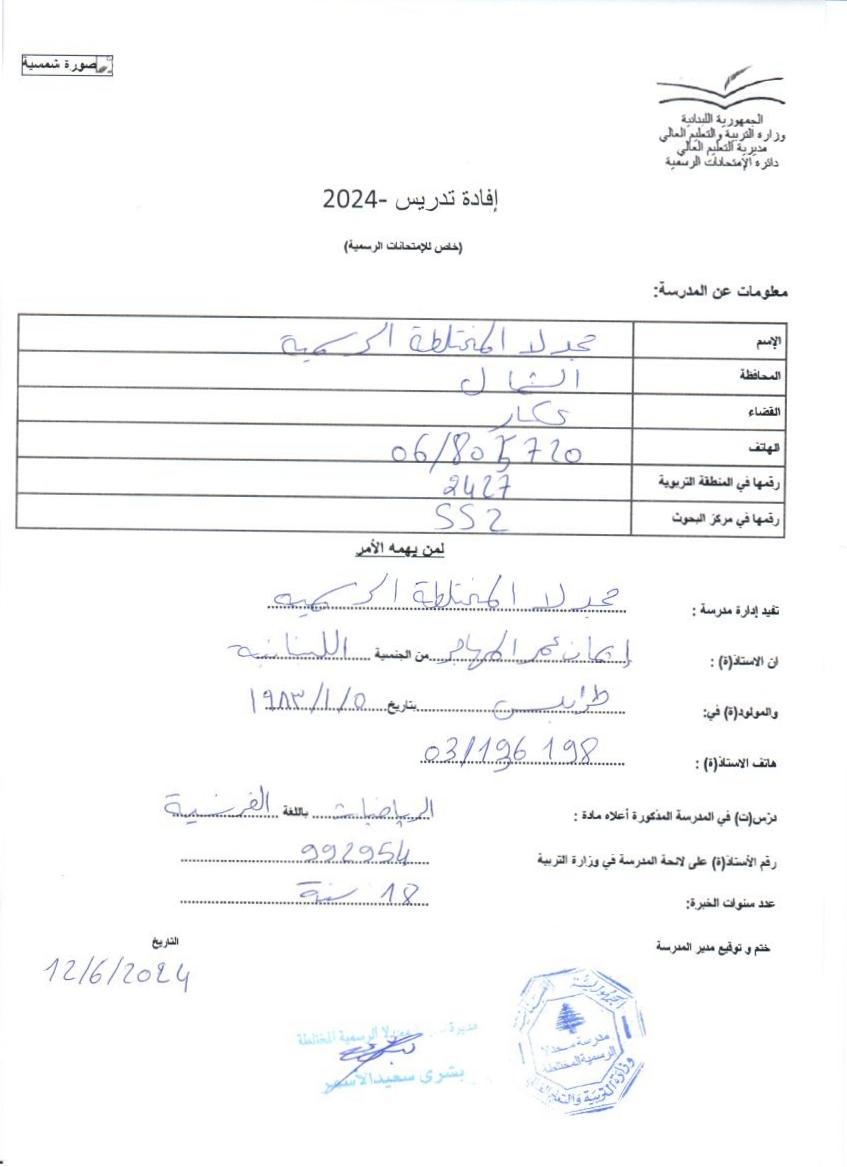 صورة شمسية
الجمهورية اللبنانية
وزارة التربية والتعليم العالي
مديرية التعليم العالي
دائرة الإمتحانات الرسمية
إفادة تدريس -2024
(خاص للإمتحانات الرسمية)
معلومات عن المدرسة:
الإسم مجدلا المختلطة الرسمية
المحافظة الشمال
القضاء عكار
الهاتف 06/805720
رقمها في المنطقة التربوية 2427
رقمها في مركز البحوث 552
لمن يهمه الأمر
تفيد إدارة مدرسة : مجدلا المختلطة الرسمية
ان الاستاذ(ة) : إيمان عمر من الجنسية اللبنانية
والمولود(ة) في: طرابلس بتاريخ ١٩٨٣/١/٥
هاتف الاستاذ(ة) : 03/196 198
درّس(ت) في المدرسة المذكورة أعلاه مادة : الرياضيات باللغة الفرنسية
رقم الأستاذ(ة) على لائحة المدرسة في وزارة التربية 992954
عدد سنوات الخبرة: 18 سنة
ختم و توقيع مدير المدرسة
التاريخ
12/6/2024
الجمهورية اللبنانية
مدرسة مجدلا
الرسمية المختلطة
وزارة التربية والتعليم العالي
مديرة مجدلا الرسمية المختلطة
بشرى سعيد الأسمر